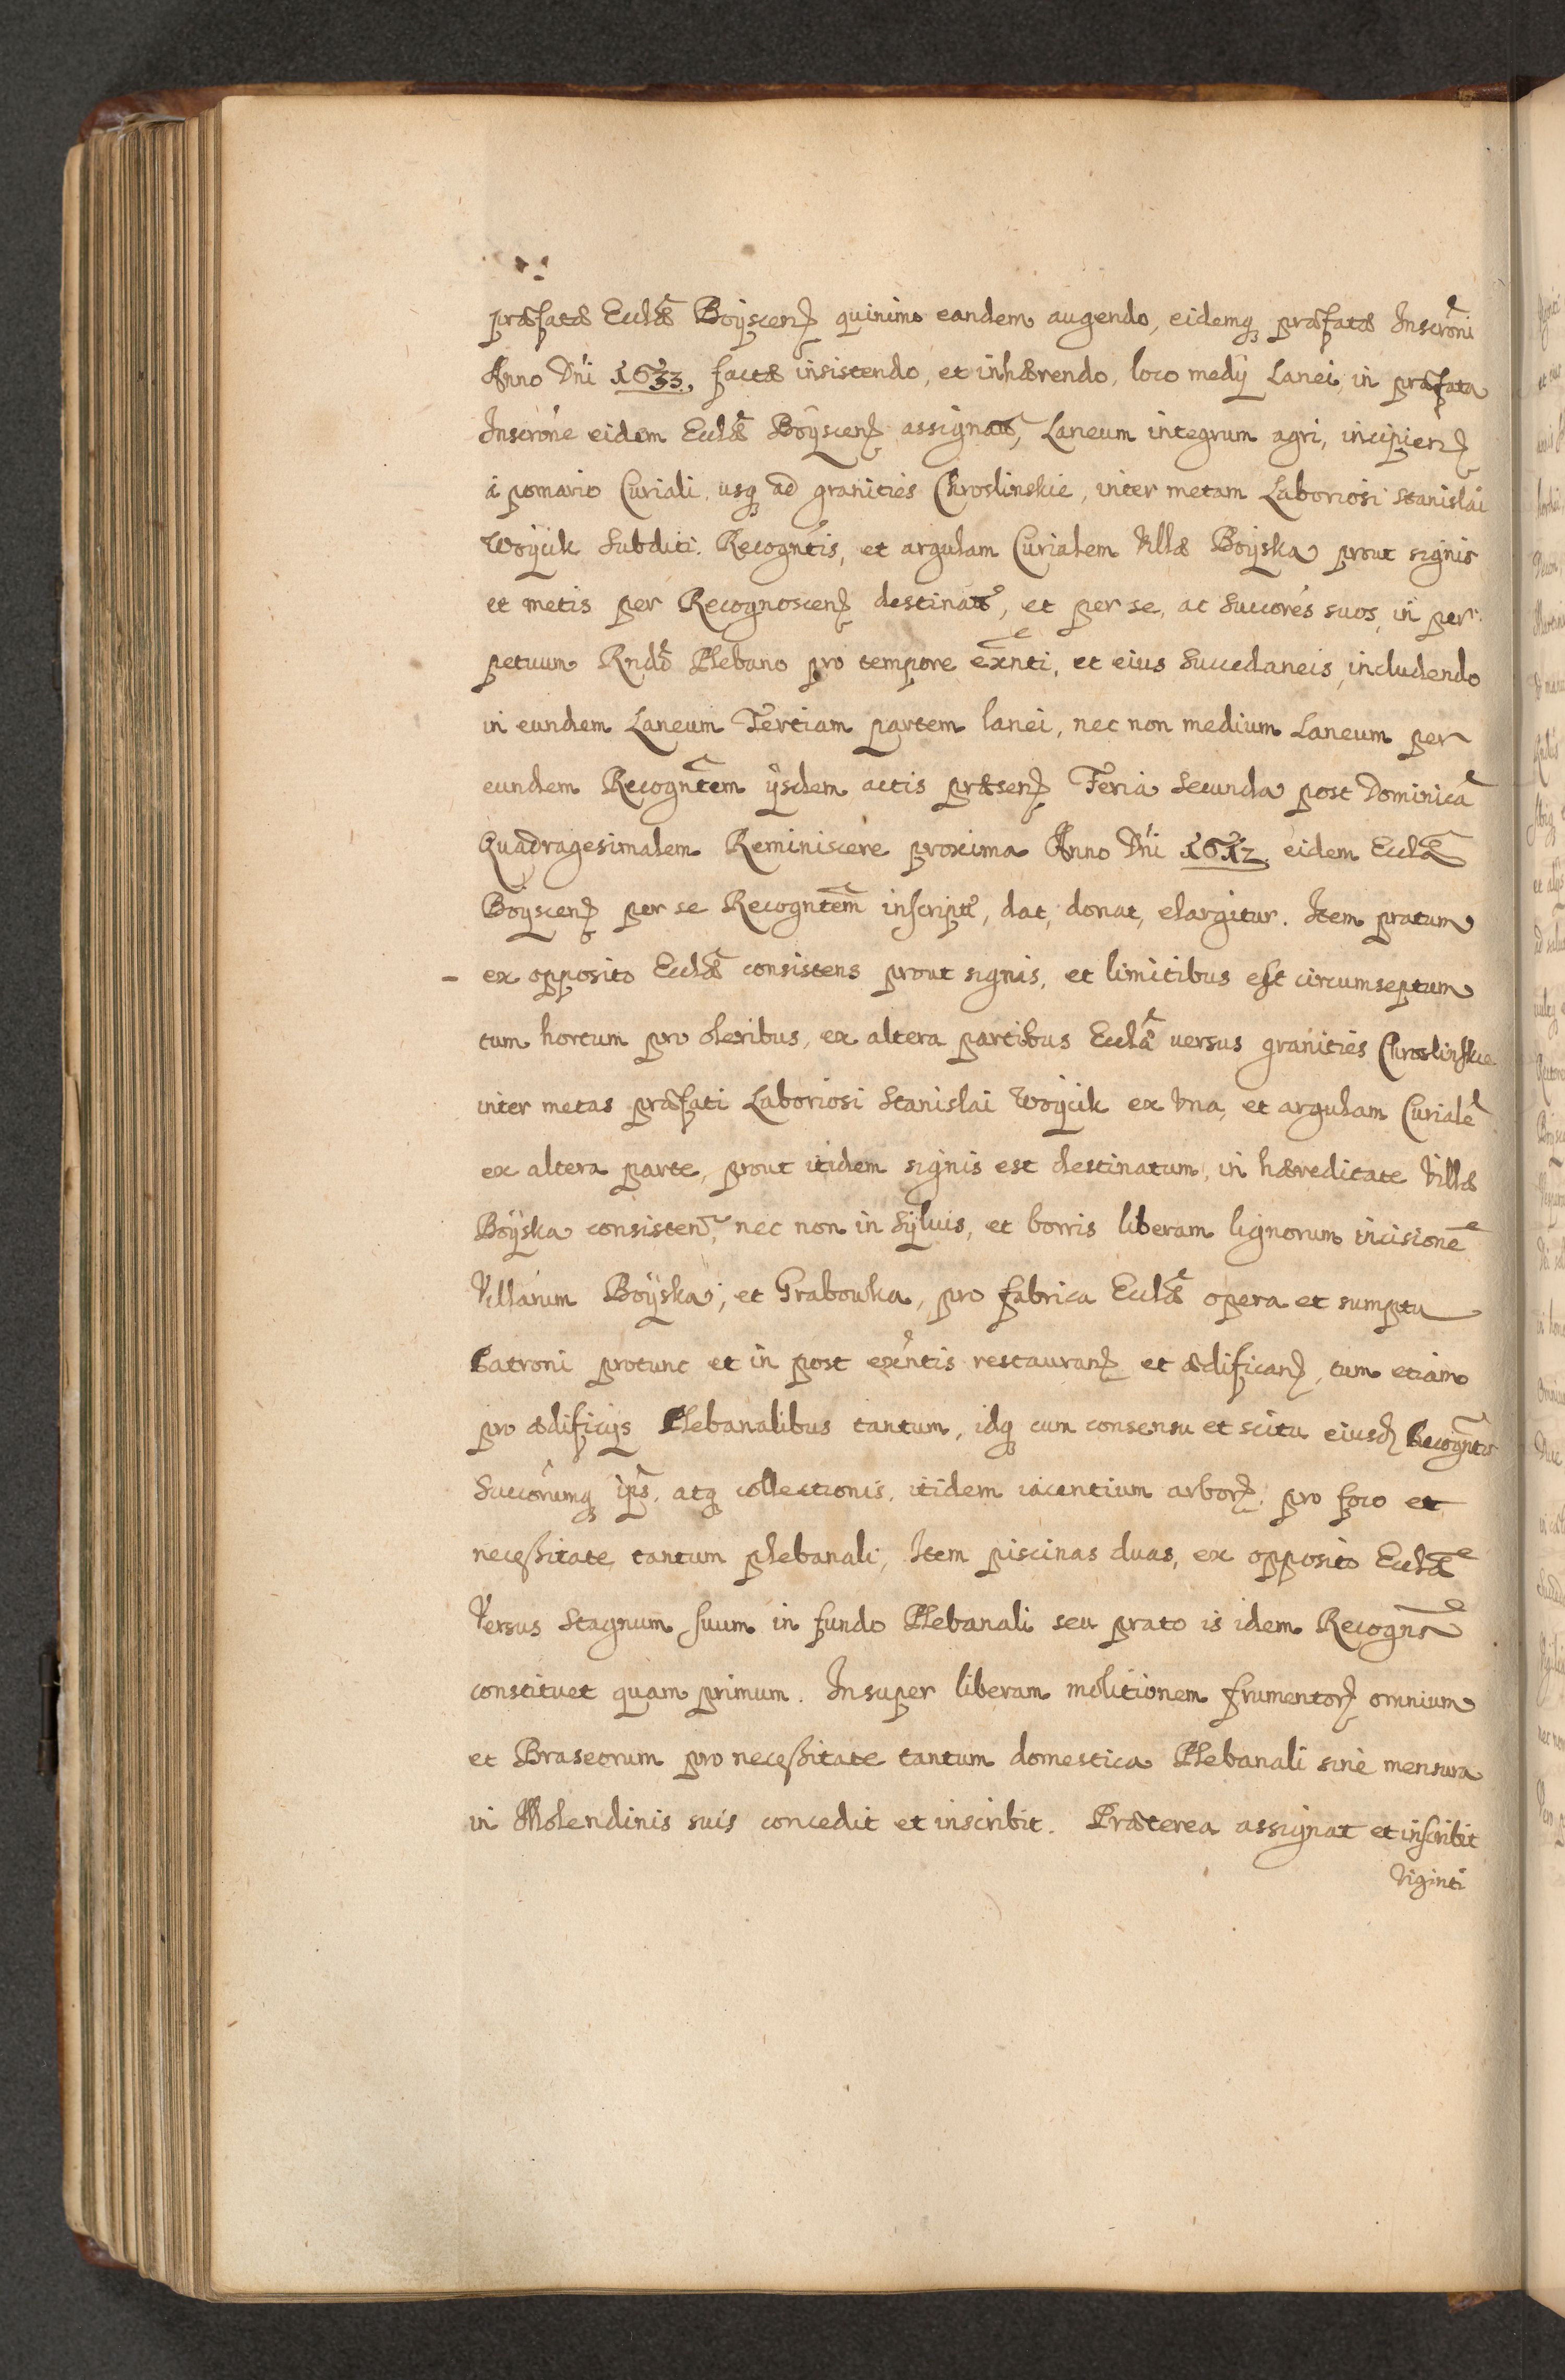 præfatæ Eccłæ Boÿscen̄ quinimo eandem augendo, eidemq́ præfatæ Inscrōni
Anno Dn̄i 1633, factæ insistendo, et inhærendo, loco medÿ Lanei, in præfata
Inscrōne eidem Eccłæ Boÿscen̄ assignat̄, Laneum integrum agri, incipien̄
à pomario Curiali, usq́ ad granities Chroslinskie, inter metam Laboriosi Stanislai
Woÿcik Subditi Recogntis, et argulam Curialem Villæ Boÿska prout signis
et metis per Recognoscen̄ destinat̄, et per se, ac Succōres suos, in per:
petuum Rndo Plebano pro tempore exn̄ti, et eius Succedaneis, includendo
in eundem Laneum Tertiam partem lanei, nec non medium Laneum per
eundem Recogntem ÿsdem actis præsen̄ Feria Secunda post Dominicā
Quadragesimalem Reminiscere proxima Anno Dn̄i 1612 eidem Eccłæ
Boÿscen̄ per se Recogntem inscript̄, dat, donat, elargitur. Item pratum
- ex opposito Eccłæ consistens prout signis, et limitibus est circumseptum
tum hortum pro oleribus, ex altera partibus Eccłæ uersus granities Chroslinskie
inter metas præfati Laboriosi Stanislai Woÿcik ex Vna, et argulam Curialē
ex altera parte, prout itidem signis est destinatum, in hæreditate Villæ
Boÿska consisten̄, nec non in Sÿluis, et borris liberam lignorum incisionē
Villarum Boÿska, et Grabouka, pro fabrica Eccłæ opera et sumptu
Patroni protunc et in post exn̄tis restauran̄ et ædifican̄, tum etiam
pro ædificÿs Plebanalibus tantum, idq́ cum consensu et scitu eiusd̄ Recogntis
Succōrumq́ ips̄, atq́ collectionis, itidem iacentium arbor̄, pro foco et
necessitate tantum plebanali, Item piscinas duas, ex opposito Eccłæ
Versus Stagnum suum in fundo Plebanali seu prato is idem Recogns
constituet quam primum. Insuper liberam molitionem frumentor̄ omnium
et Braseorum pro necessitate tantum domestica Plebanali sine mensura
in Molendinis suis concedit et inscribit. Præterea assignat et inscribit
Viginti